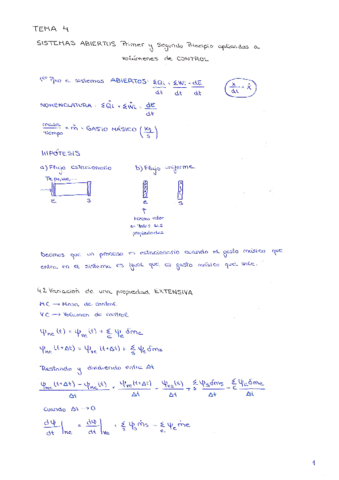 TEMA 4
SISTEMAS ABIERTOS Primer y Segundo Principio aplicados a
volúmenes de CONTROL
1er Ppio a sistemas ABIERTOS: ΣQi + ΣWi = dE
dt dt dt
x/Δt = ẋ
NOMENCLATURA: ΣQ̇i + ΣẆi = dE/dt
masa/tiempo = ṁ = GASTO MÁSICO (kg/s)
HIPÓTESIS
a) Flujo estacionario b) Flujo uniforme
e s e s
mismo valor
en todas sus
propiedades
Decimos que un proceso es estacionario cuando el gasto másico que
entra en el sistema es igual que el gasto másico que sale.
4.2 Variación de una propiedad EXTENSIVA
MC → Masa de control
VC → Volumen de control
Ψmc (t) = Ψvc (t) + Σe Ψe δme
Ψmc (t+Δt) = Ψvc (t+Δt) + Σs Ψs δms
Restando y dividiendo entre Δt
Ψmc (t+Δt) - Ψmc (t) / Δt = Ψvc (t+Δt) / Δt - Ψvc (t) / Δt + Σs Ψs δms / Δt - Σe Ψe δme / Δt
Cuando Δt → 0
dΨ/dt |mc = dΨ/dt |vc + Σs Ψs ṁs - Σe Ψe ṁe
1